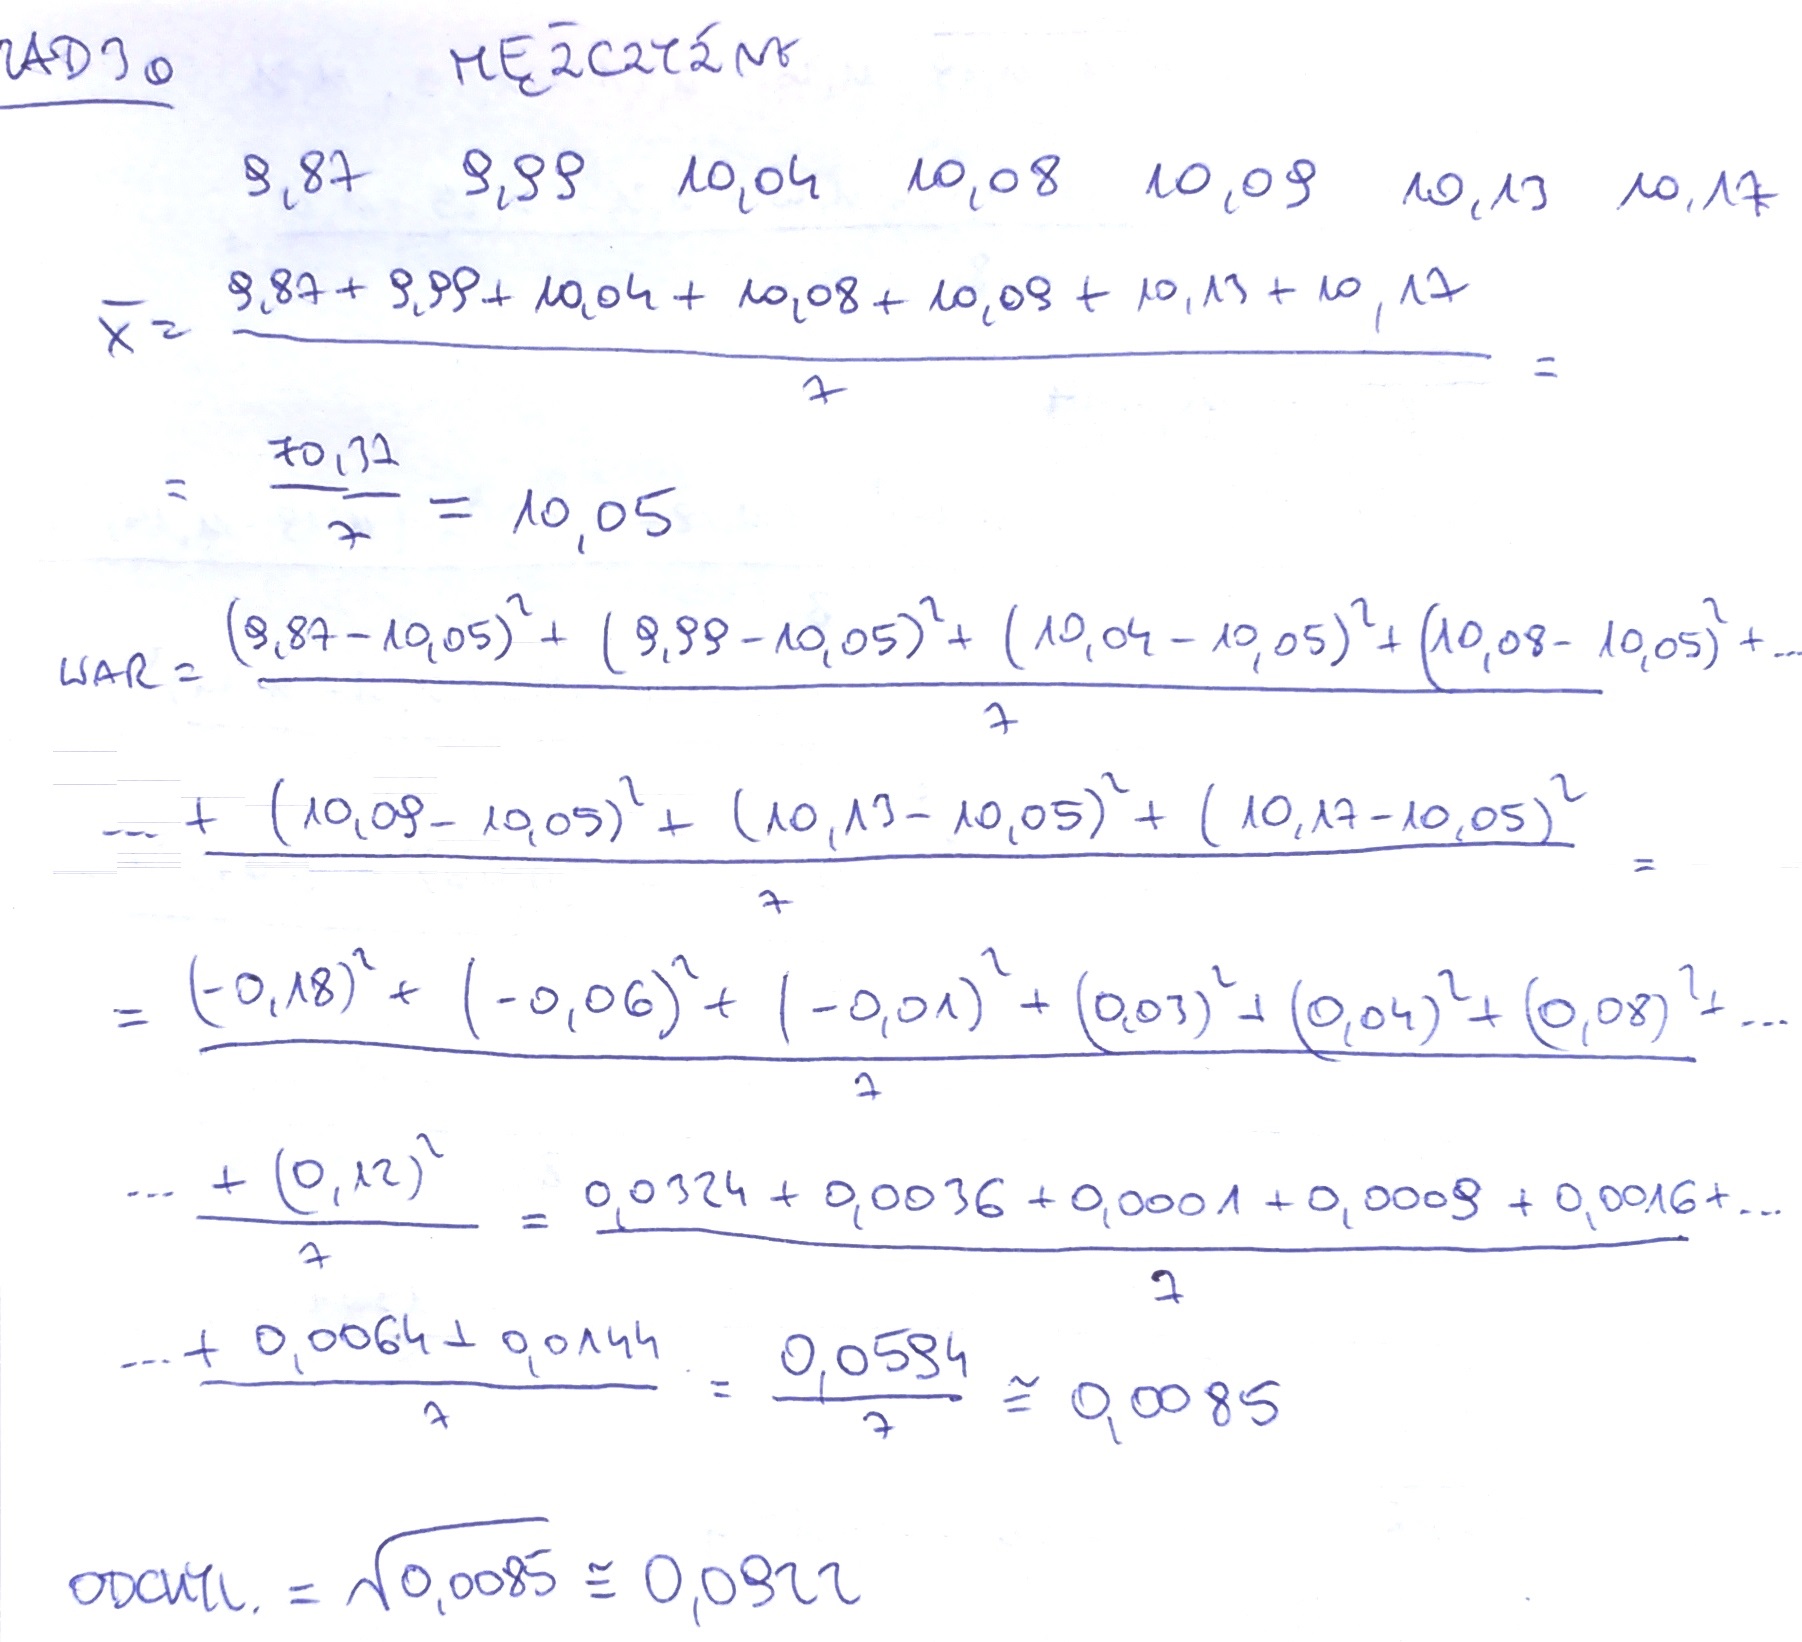 ZAD 3o MĘŻCZYŹNI
9,87 9,99 10,04 10,08 10,09 10,13 10,17
x̄ = (9,87 + 9,99 + 10,04 + 10,08 + 10,09 + 10,13 + 10,17) / 7 =
= 70,37 / 7 = 10,05
WAR = ((9,87 - 10,05)² + (9,99 - 10,05)² + (10,04 - 10,05)² + (10,08 - 10,05)² + ... / 7
... + (10,09 - 10,05)² + (10,13 - 10,05)² + (10,17 - 10,05)² / 7 =
= (-0,18)² + (-0,06)² + (-0,01)² + (0,03)² + (0,04)² + (0,08)² + ... / 7
... + (0,12)² / 7 = 0,0324 + 0,0036 + 0,0001 + 0,0009 + 0,0016 + ... / 7
... + 0,0064 + 0,0144 / 7 = 0,0594 / 7 ≅ 0,0085
ODCHYL. = √0,0085 ≅ 0,0922